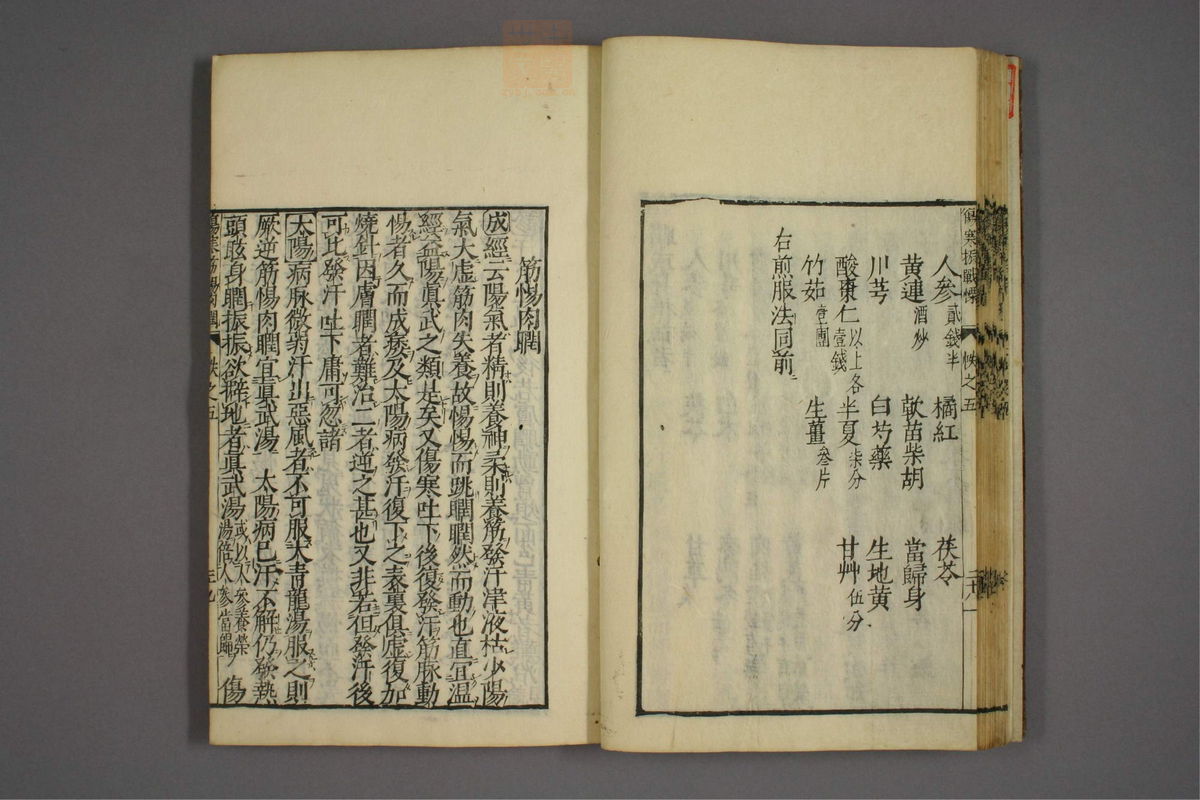 傷寒振戰慄 帙之五
人參貳錢半 橘紅 茯苓
黃連酒炒 軟苗柴胡 當歸身
川芎 白芍藥 生地黃
酸棗仁以上各壹錢 半夏柒分 甘艸伍分
竹茹壹團 生薑叄片
右煎服法同前
筋惕肉瞤
成經云陽氣者精則養神柔則養筋發汗津液枯少陽
氣大虛筋肉失養故惕惕而跳瞤瞤然而動也直宜溫
經益陽眞武之類是矣又傷寒吐下後復發汗筋脉動
惕者久而成痿及太陽病發汗復下之表裏俱虛復加
燒針因膚瞤者難治二者逆之甚也又非若但發汗後
可比發汗吐下庸可忽諸
太陽病脉微弱汗出惡風者不可服大青龍湯服之則
厥逆筋惕肉瞤宜眞武湯 太陽病已汗不解仍發熱
頭眩身瞤振振欲擗地者眞武湯或以人參養榮湯倍人參當歸 傷
傷寒筋惕肉瞤 帙之五